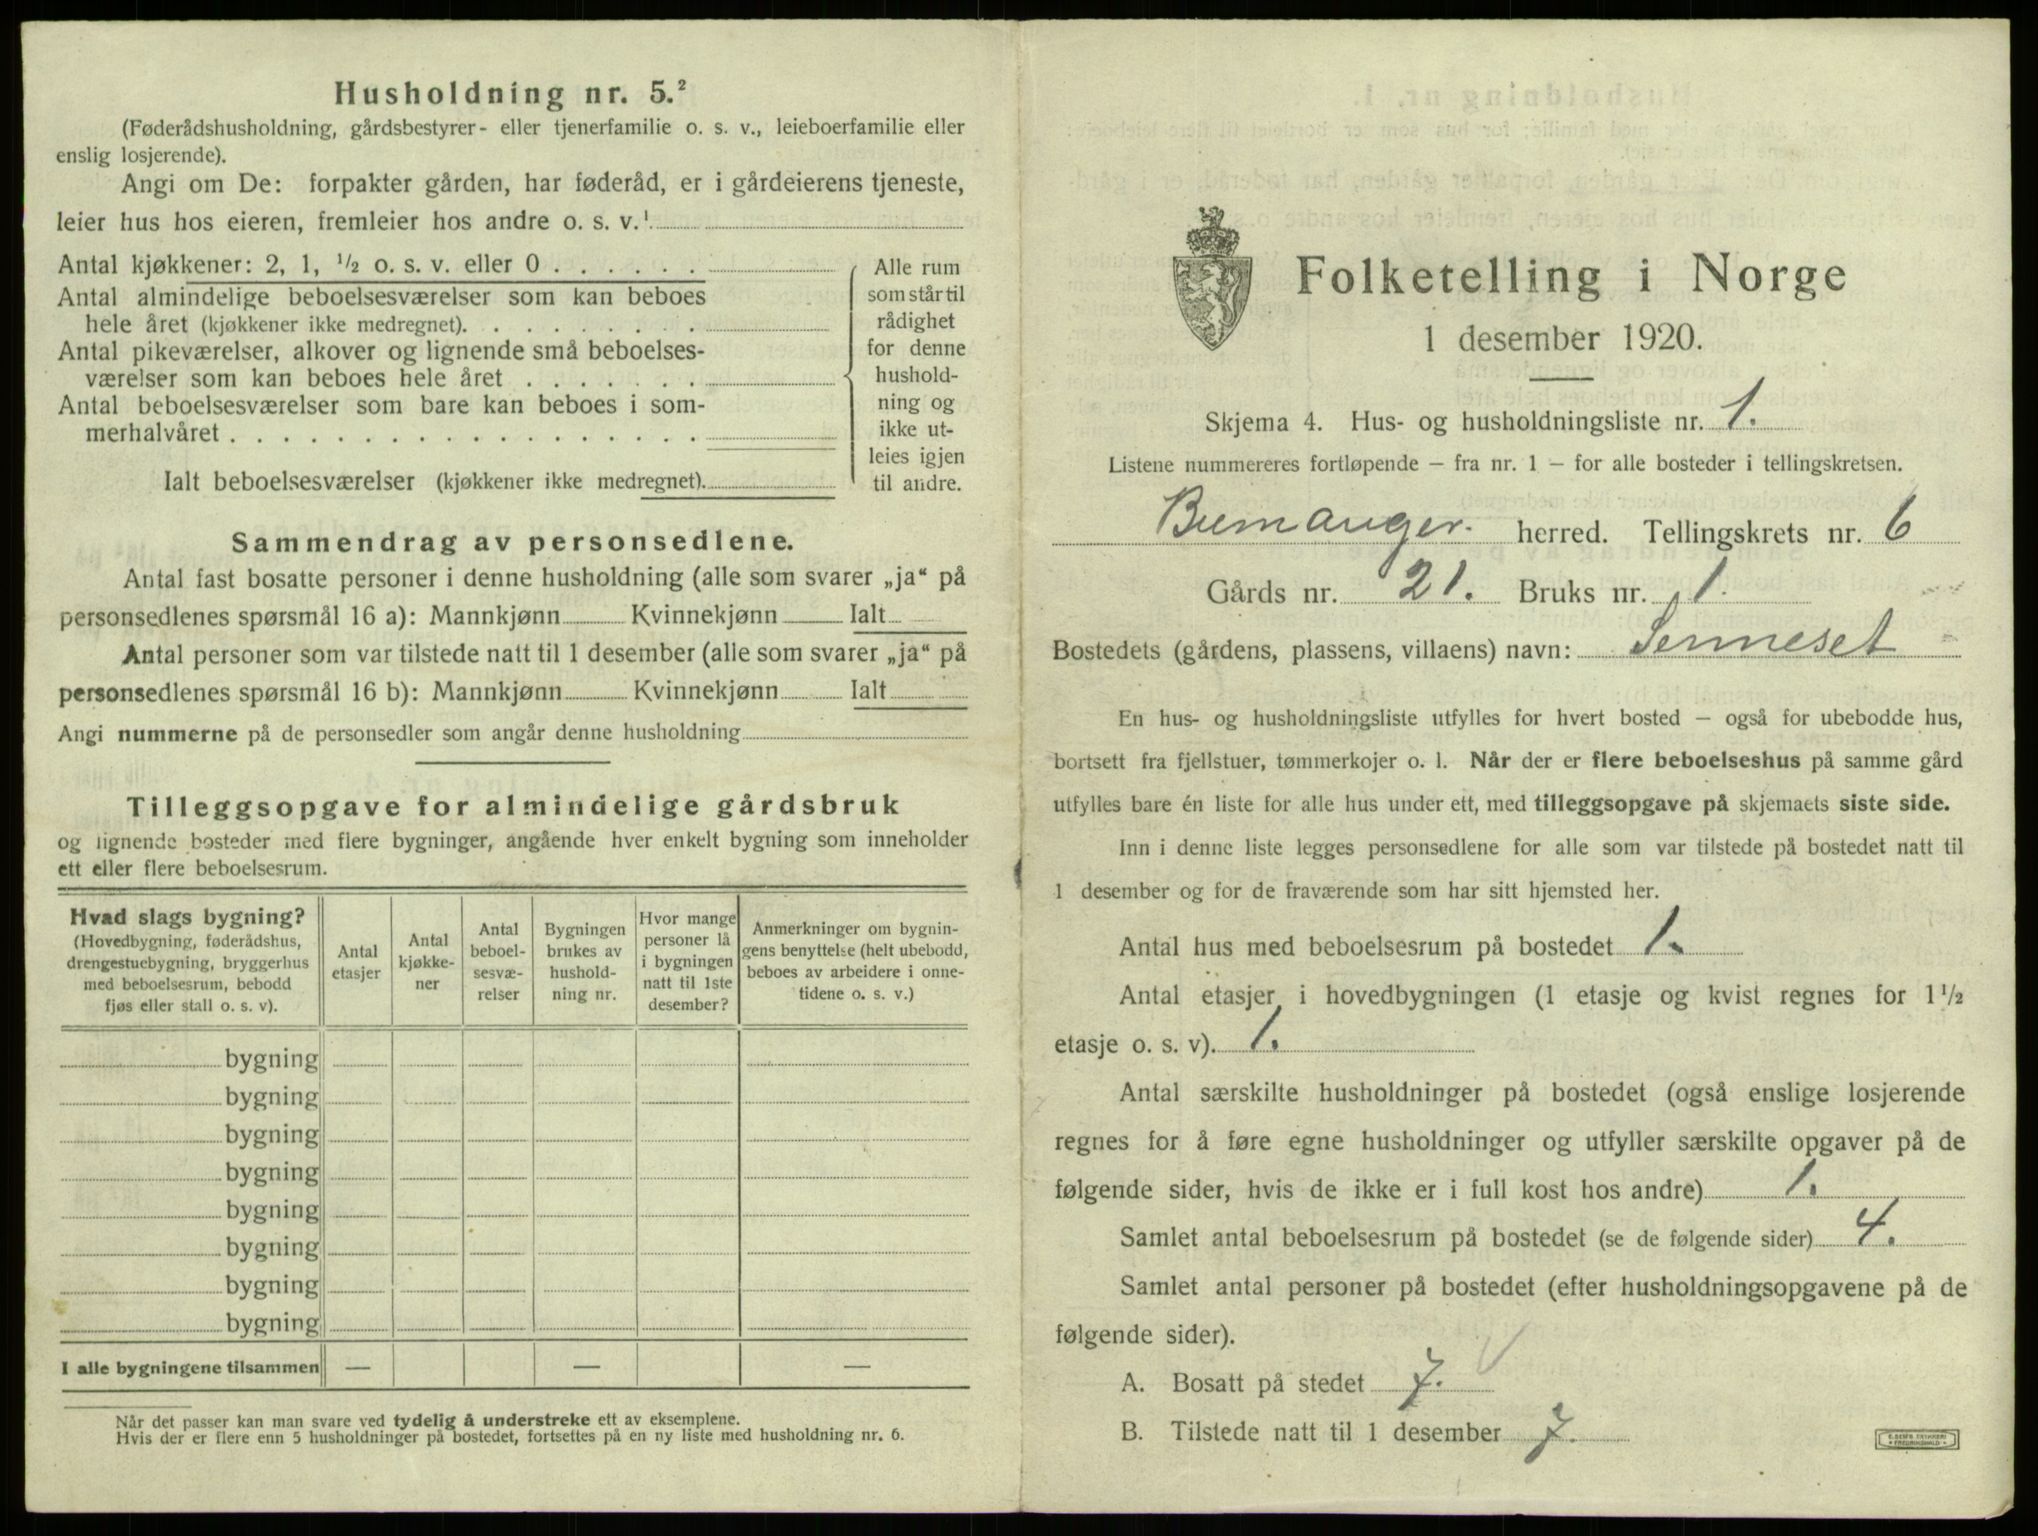 Husholdning nr. 5.²
(Føderådshusholdning, gårdsbestyrer- eller tjenerfamilie o. s. v., leieboerfamilie eller
enslig losjerende).
Angi om De: forpakter gården, har føderåd, er i gårdeierens tjeneste,
leier hus hos eieren, fremleier hos andre o. s. v.¹
Antal kjøkkener: 2, 1, ½ o. s. v. eller 0 . . . . . .
Antal almindelige beboelsesværelser som kan beboes
hele året (kjøkkener ikke medregnet). . . . . . . . .
Antal pikeværelser, alkover og lignende små beboelses-
værelser som kan beboes hele året . . . . . . .
Antal beboelsesværelser som bare kan beboes i som-
merhalvåret . . . . . . . . . . . . . . . . . .
Ialt beboelsesværelser (kjøkkener ikke medregnet).
Alle rum
som står til
rådighet
for denne
hushold-
ning og
ikke ut-
leies igjen
til andre.
Sammendrag av personsedlene.
Antal fast bosatte personer i denne husholdning (alle som svarer „ja“ på
personsedlenes spørsmål 16 a): Mannkjønn Kvinnekjønn Ialt
Antal personer som var tilstede natt til 1 desember (alle som svarer „ja“ på
personsedlenes spørsmål 16 b): Mannkjønn Kvinnekjønn Ialt
Angi nummerne på de personsedler som angår denne husholdning
Tilleggsopgave for almindelige gårdsbruk
og lignende bosteder med flere bygninger, angående hver enkelt bygning som inneholder
ett eller flere beboelsesrum.
Hvad slags bygning?
(Hovedbygning, føderådshus,
drengestuebygning, bryggerhus
med beboelsesrum, bebodd
fjøs eller stall o. s. v).
Antal
etasjer
Antal
kjøkke-
ner
Antal
beboel-
sesvæ-
relser
Bygningen
brukes av
hushold-
ning nr.
Hvor mange
personer lå
i bygningen
natt til 1ste
desember?
Anmerkninger om bygnin-
gens benyttelse (helt ubebodd,
beboes av arbeidere i onne-
tidene o. s. v.)
bygning
bygning
bygning
bygning
bygning
bygning
bygning
bygning
I alle bygningene tilsammen — — —
Når det passer kan man svare ved tydelig å understreke ett av eksemplene.
Hvis der er flere enn 5 husholdninger på bostedet, fortsettes på en ny liste med husholdning nr. 6.
Folketelling i Norge
1 desember 1920.
Skjema 4. Hus- og husholdningsliste nr. 1.
Listene nummereres fortløpende — fra nr. 1 — for alle bosteder i tellingskretsen.
Bremanger. herred. Tellingskrets nr. 6
Gårds nr. 21. Bruks nr. 1.
Bostedets (gårdens, plassens, villaens) navn: Senneset
En hus- og husholdningsliste utfylles for hvert bosted — også for ubebodde hus,
bortsett fra fjellstuer, tømmerkojer o. l. Når der er flere beboelseshus på samme gård
utfylles bare én liste for alle hus under ett, med tilleggsopgave på skjemaets siste side.
Inn i denne liste legges personsedlene for alle som var tilstede på bostedet natt til
1 desember og for de fraværende som har sitt hjemsted her.
Antal hus med beboelsesrum på bostedet 1.
Antal etasjer i hovedbygningen (1 etasje og kvist regnes for 1½
etasje o. s. v). 1.
Antal særskilte husholdninger på bostedet (også enslige losjerende
regnes for å føre egne husholdninger og utfyller særskilte opgaver på de
følgende sider, hvis de ikke er i full kost hos andre) 1.
Samlet antal beboelsesrum på bostedet (se de følgende sider) 4.
Samlet antal personer på bostedet (efter husholdningsopgavene på de
følgende sider).
A. Bosatt på stedet 7.
B. Tilstede natt til 1 desember 7.